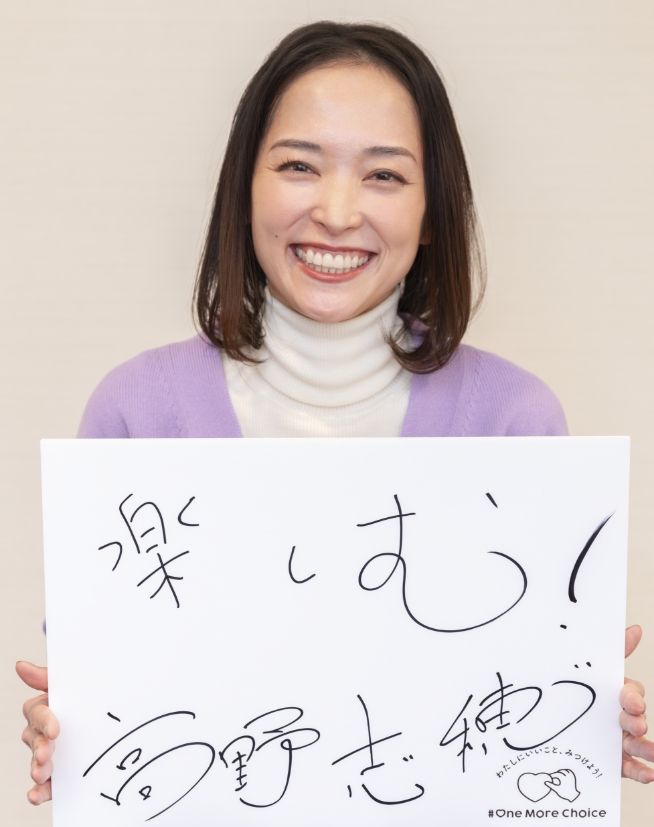 楽しむ!
高野志穂
わたしにいいこと、みつけよう!
#One More Choice